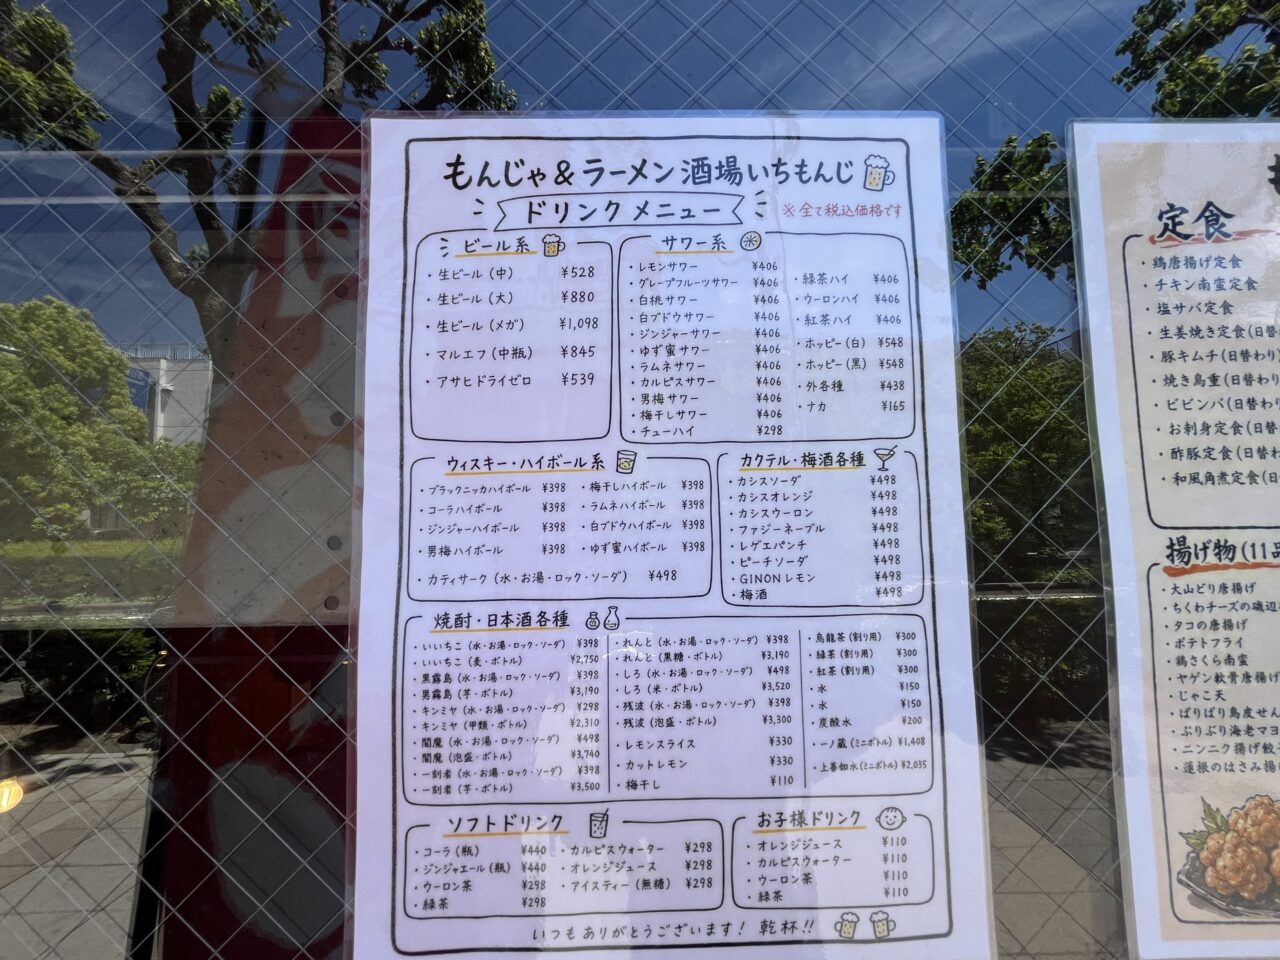 もんじゃ&ラーメン酒場いちもんじ
ドリンクメニュー
※全て税込価格です
ビール系
・生ビール(中) ¥528
・生ビール(大) ¥880
・生ビール(メガ) ¥1,098
・マルエフ(中瓶) ¥845
・アサヒドライゼロ ¥539
サワー系
・レモンサワー ¥406
・グレープフルーツサワー ¥406
・白桃サワー ¥406
・白ブドウサワー ¥406
・ジンジャーサワー ¥406
・ゆず蜜サワー ¥406
・ラムネサワー ¥406
・カルピスサワー ¥406
・男梅サワー ¥406
・梅干しサワー ¥406
・チューハイ ¥298
・緑茶ハイ ¥406
・ウーロンハイ ¥406
・紅茶ハイ ¥406
・ホッピー(白) ¥548
・ホッピー(黒) ¥548
・外各種 ¥438
・ナカ ¥165
ウィスキー・ハイボール系
・ブラックニッカハイボール ¥398
・コーラハイボール ¥398
・ジンジャーハイボール ¥398
・男梅ハイボール ¥398
・梅干しハイボール ¥398
・ラムネハイボール ¥398
・白ブドウハイボール ¥398
・ゆず蜜ハイボール ¥398
・カティサーク(水・お湯・ロック・ソーダ) ¥498
カクテル・梅酒各種
・カシスソーダ ¥498
・カシスオレンジ ¥498
・カシスウーロン ¥498
・ファジーネーブル ¥498
・レゲエパンチ ¥498
・ピーチソーダ ¥498
・GINONレモン ¥498
・梅酒 ¥498
焼酎・日本酒各種
・いいちこ(水・お湯・ロック・ソーダ) ¥398
・いいちこ(麦・ボトル) ¥2,750
・黒霧島(水・お湯・ロック・ソーダ) ¥398
・男霧島(芋・ボトル) ¥3,190
・キンミヤ(水・お湯・ロック・ソーダ) ¥298
・キンミヤ(甲類・ボトル) ¥2,310
・閻魔(水・お湯・ロック・ソーダ) ¥498
・閻魔(泡盛・ボトル) ¥3,740
・一刻者(水・お湯・ロック・ソーダ) ¥398
・一刻者(芋・ボトル) ¥3,500
・れんと(水・お湯・ロック・ソーダ) ¥398
・れんと(黒糖・ボトル) ¥3,190
・しろ(水・お湯・ロック・ソーダ) ¥498
・しろ(米・ボトル) ¥3,520
・残波(水・お湯・ロック・ソーダ) ¥398
・残波(泡盛・ボトル) ¥3,300
・レモンスライス ¥330
・カットレモン ¥330
・梅干し ¥110
・烏龍茶(割り用) ¥300
・緑茶(割り用) ¥300
・紅茶(割り用) ¥300
・水 ¥150
・水 ¥150
・炭酸水 ¥200
・一ノ蔵(ミニボトル) ¥1,408
・上善如水(ミニボトル) ¥2,035
ソフトドリンク
・コーラ(瓶) ¥440
・ジンジャエール(瓶) ¥440
・ウーロン茶 ¥298
・緑茶 ¥298
・カルピスウォーター ¥298
・オレンジジュース ¥298
・アイスティー(無糖) ¥298
お子様ドリンク
・オレンジジュース ¥110
・カルピスウォーター ¥110
・ウーロン茶 ¥110
・緑茶 ¥110
いつもありがとうございます! 乾杯!!
定食
・鶏唐揚げ定食
・チキン南蛮定食
・塩サバ定食
・生姜焼き定食(日替
・豚キムチ(日替わり)
・焼き鳥重(日替わり
・ビビンバ(日替わり
・お刺身定食(日替
・酢豚定食(日替わ
・和風角煮定食(日
揚げ物(11品
・大山どり唐揚げ
・ちくわチーズの磯辺
・タコの唐揚げ
・ポテトフライ
・鶏さくら南蛮
・ヤゲン軟骨唐揚げ
・じゃこ天
・ぱりぱり鳥皮せん
・ぷりぷり海老マヨ
・ニンニク揚げ餃
・蓮根のはさみ揚げ